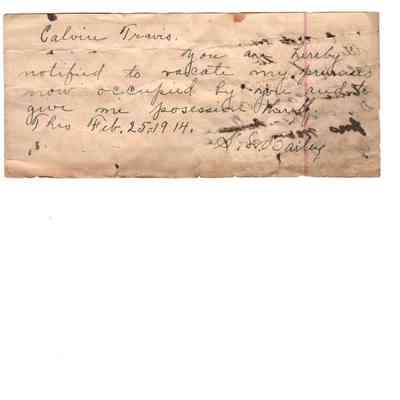 Calvin Travis.
You are hereby
notified to vacate my premises
now occupied by you and
give me posession
This Feb. 25-1914.
Bailey